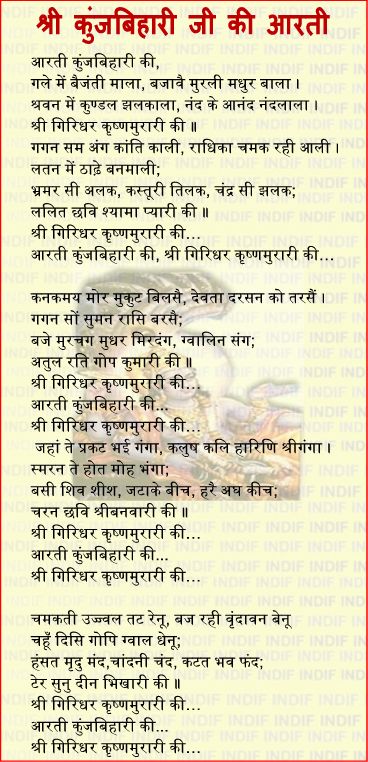 श्री कुंजबिहारी जी की आरती
आरती कुंजबिहारी की,
गले में बैजंती माला, बजावै मुरली मधुर बाला ।
श्रवन में कुण्डल झलकाला, नंद के आनंद नंदलाला ।
श्री गिरिधर कृष्णमुरारी की ॥
गगन सम अंग कांति काली, राधिका चमक रही आली ।
लतन में ठाढ़े बनमाली;
भ्रमर सी अलक, कस्तूरी तिलक, चंद्र सी झलक;
ललित छवि श्यामा प्यारी की ॥
श्री गिरिधर कृष्णमुरारी की...
आरती कुंजबिहारी की, श्री गिरिधर कृष्णमुरारी की...
कनकमय मोर मुकुट बिलसै, देवता दरसन को तरसैं ।
गगन सों सुमन रासि बरसै;
बजे मुरचंग मुधर मिरदंग, ग्वालिन संग;
अतुल रति गोप कुमारी की ॥
श्री गिरिधर कृष्णमुरारी की...
आरती कुंजबिहारी की...
श्री गिरिधर कृष्णमुरारी की...
जहां ते प्रकट भई गंगा, कलुष कलि हारिणि श्रीगंगा ।
स्मरन ते होत मोह भंगा;
बसी शिव शीश, जटाके बीच, हरै अघ कीच;
चरन छवि श्रीबनवारी की ॥
श्री गिरिधर कृष्णमुरारी की...
आरती कुंजबिहारी की...
श्री गिरिधर कृष्णमुरारी की...
चमकती उज्ज्वल तट रेनू, बज रही बृंदावन बेनू
चहूँ दिसि गोपि ग्वाल धेनू;
हंसत मृदु मंद,चांदनी चंद, कटत भव फंद;
टेर सुनु दीन भिखारी की ॥
श्री गिरिधर कृष्णमुरारी की...
आरती कुंजबिहारी की...
श्री गिरिधर कृष्णमुरारी की...